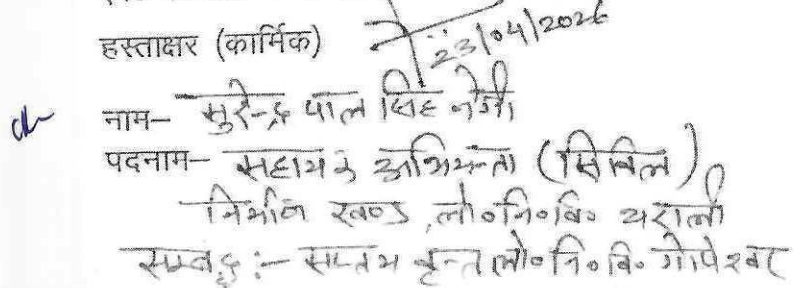 हस्ताक्षर (कार्मिक) 23/04/2026
नाम– सुरेन्द्र पाल सिंह नेगी
पदनाम– सहायक अभियन्ता (सिविल)
निर्माण खण्ड, लो०नि०वि० थराली
सम्बद्ध :– सप्तम वृत्त लो०नि०वि० गोपेश्वर